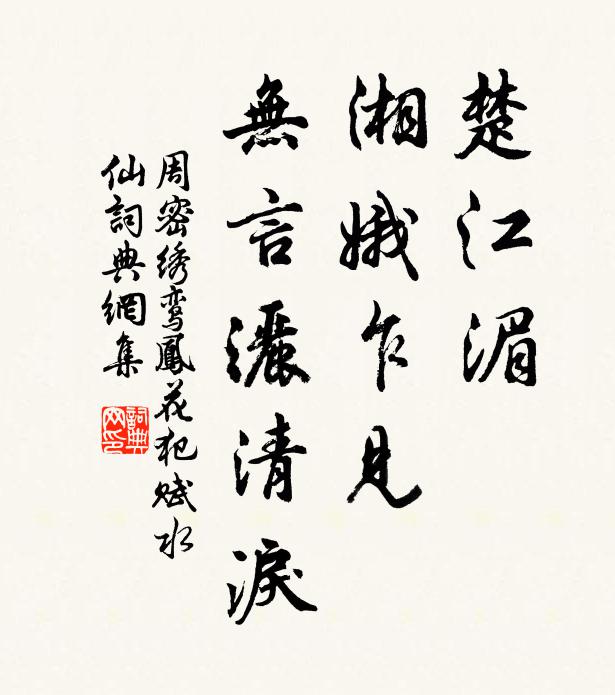 楚江湄
湘娥乍見
無言灑清淚
周密绣鸾鳳花犯賦水
仙詞典網集
詞典网印